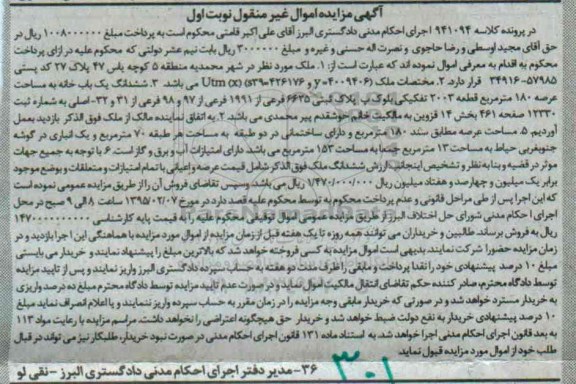 آگهی مزایده اموال غیر منقول نوبت اول
در پرونده کلاسه ۹۴۱۰۹۴ اجرای احکام مدنی دادگستری البرز آقای علی اکبر قامتی محکوم است به پرداخت مبلغ ۱۰۰۸۰۰۰۰۰۰ ریال در
حق آقای مجید اوسطی و رضا حاجوی و نصرت اله حسنی و غیره و مبلغ ۳۰۰۰۰۰۰ ریال بابت نیم عشر دولتی که محکوم علیه در ازای پرداخت
محکوم به اقدام به معرفی اموال نموده اند که عبارت است از: ۱. ملک مورد نظر در شهر محمدیه منطقه ۵ کوچه یاس ۴۷ پلاک ۲۷ کد پستی
۵۷۹۸۵-۳۴۹۱۶ قرار دارد. ۲. مختصات ملک (y=۴۰۰۹۴۰۶ و ۵۳۹=۴۲۶۱۷۶) Utm (x) می باشد. ۳. ششدانگ یک باب خانه به مساحت
عرصه ۱۸۰ مترمربع قطعه ۲۰۰۳ تفکیکی بلوک ب پلاک ثبتی ۶۶۳۵ فرعی از ۱۹۹۱ فرعی از ۹۷ و ۹۸ فرعی از ۳۱ و ۳۲- اصلی به شماره ثبت
۱۲۳۳۰ صفحه ۴۶۱ بخش ۱۴ قزوین به مالکیت خانم خوشقدم پیر محمدی می باشد. ۴. به اتفاق نماینده مالک از ملک فوق الذکر بازدید بعمل
آوردیم. ۵. مساحت عرصه مطابق سند ۱۸۰ مترمربع و دارای ساختمانی در دو طبقه به مساحت هر طبقه ۷۰ مترمربع و یک انباری در گوشه
جنوبغربی حیاط به مساحت ۱۳ مترمربع جمعا به مساحت ۱۵۳ مترمربع می باشد. دارای امتیازات آب و برق و گاز است. ۶. با توجه به جمیع جهات
موثر در قضیه و بنا به نظر و تشخیص اینجانب ارزش ششدانگ ملک فوق الذکر شامل قیمت عرصه و اعیانی با تمام امتیازات و متعلقات و بوضع موجود
برابر یک میلیون و چهارصد و هفتاد میلیون ریال ۱/۴۷۰/۰۰۰/۰۰۰ ریال می باشد. وسپس تقاضای فروش آن را از طریق مزایده عمومی نموده است
که این اجرا پس از طی مراحل قانونی و عدم پرداخت محکوم به توسط محکوم علیه قصد دارد در مورخ ۱۳۹۵/۰۲/۰۷ ساعت ۸ الی ۹ صبح در محل
اجرای احکام مدنی شورای حل اختلاف البرز از طریق مزایده عمومی، اموال توقیفی محکوم علیه را به قیمت پایه کارشناسی ۱۴۷۰۰۰۰۰۰۰
ریال به فروش برساند. طالبین و خریداران می توانند همه روزه تا یک هفته قبل از زمان مزایده از اموال مورد مزایده با هماهنگی این اجرا بازدید و در
زمان مزایده حضورا شرکت نمایند. بدیهی است اموال مزایده به کسی فروخته خواهد شد که بالاترین مبلغ را پیشنهاد نمایند و خریدار می بایستی
مبلغ ۱۰ درصد پیشنهادی خود را نقدا پرداخت و مابقی را ظرف مدت دو هفته به حساب سپرده دادگستری البرز واریز نمایند و پس از تایید مزایده
توسط دادگاه محترم، صادر کننده حکم تقاضای انتقال مالکیت اموال نماید و در صورت عدم تایید مزایده توسط دادگاه محترم مبلغ ده درصد واریزی
به خریدار مسترد خواهد شد و در صورتی که خریدار مابقی وجه مزایده را در زمان مقرر به حساب سپرده واریز ننمایند و یا اعلام انصراف نماید مبلغ
۱۰ درصد پیشنهادی خریدار به نفع دولت ضبط خواهد شد و خریدار حق هیچگونه اعتراضی را نخواهد داشت. مراسم مزایده با رعایت مواد ۱۱۳
به بعد قانون اجرای احکام مدنی اجرا خواهد شد. به استناد ماده ۱۳۱ قانون اجرای احکام مدنی در صورت نبود خریدار، طلبکار نیز می تواند در قبال
طلب خود از اموال مورد مزایده قبول نماید.
۳۶- مدیر دفتر اجرای احکام مدنی دادگستری البرز - نقی لو
۳۰۱